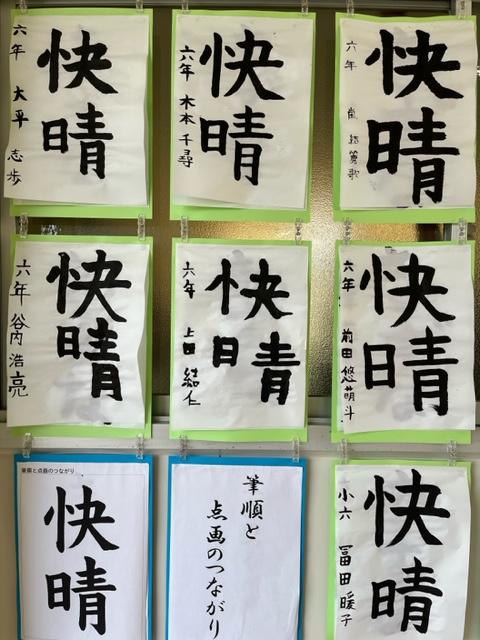 快晴
六年 大平 志歩
快晴
六年 木本 千尋
快晴
六年
快晴
六年 谷内 浩亮
快晴
六年 上田 結仁
快晴
六年 前田 悠萌斗
筆順と点画のつながり
快晴
筆順と
点画のつながり
快晴
小六 冨田 暖子